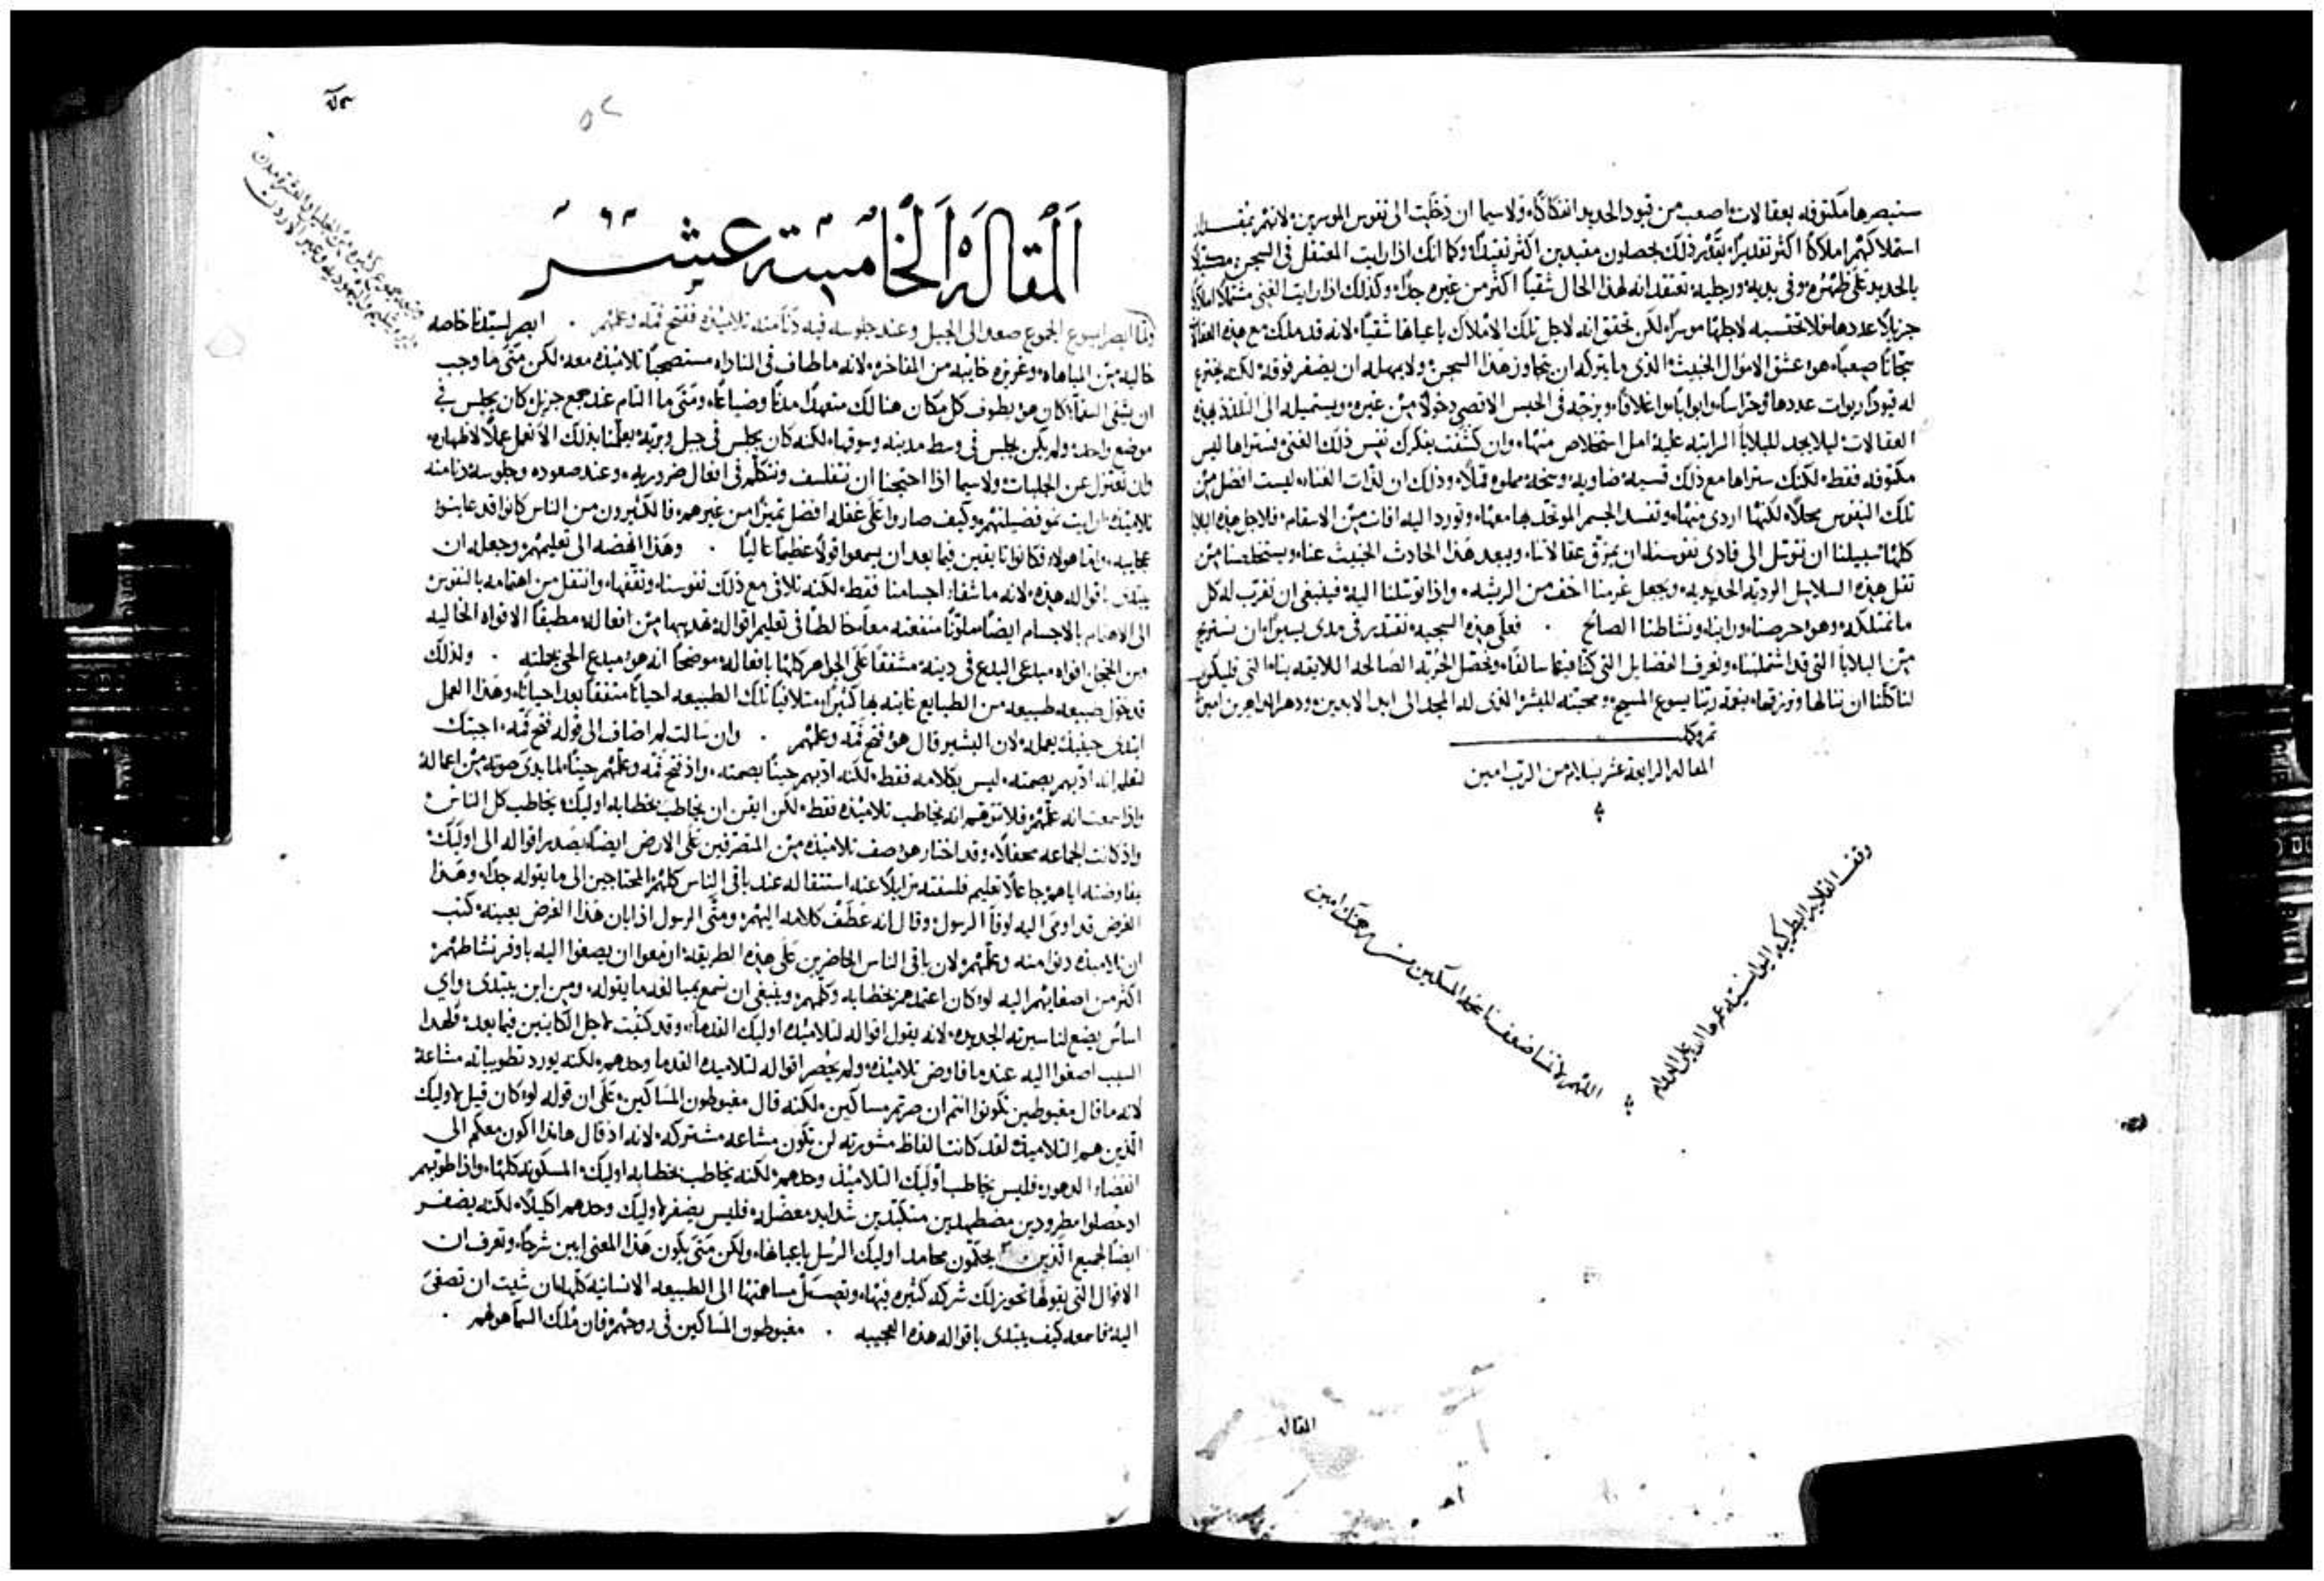 سنبصرها مكتوفه بعقالات اصعب من قيود الحديد انفكاكاً ولا سيما ان دخلت الى نفوس الموسرين لانهم بمقدار
استملاكهم املاكاً اكثر تقديراً بقدر ذلك يحصلون مقيدين اكثر تقييداً وكما انك اذا رايت المعتقل في السجن مكبلا
بالحديد على ظهره وفي يديه ورجليه تعتقد انه لهذا الحال شقياً اكثر من غيره جداً وكذلك اذا رايت الغني مشتملاً املاكاً
جزيلاً عددها فلا تحتسبه لاجلها موسراً لكن تحقق انه لاجل تلك الاملاك باعيانها شقياً لانه قد ملك مع هذه العقالات
سجاناً صعباً هو عشق الاموال الخبيث الذي ما يتركه ان يتجاوز هذا السجن ولا يمهله ان يضفر فوقه لكنه يخترع
له قيوداً ربوات عددها وحراساً وابواباً واغلاقاً ويزجه في الحبس الاقصى دخولاً من غيره ويستميله الى التلذذ بهذه
العقالات ليلا يجد للبلايا الراتبه عليه امل استخلاص منها وان كشفت بفكرك نفس ذلك الغني فستراها ليس
مكتوفه فقط لكنك ستراها مع ذلك قسيه ضاويه وسخه مملوه قملاً وذلك ان لذات الغناء ليست افضل من
تلك النفوس محلاً لكنها اردى منها وتفسد الجسم الموتحد بها معها وتورد اليه افات من الاسقام فلاجل هذه البلايا
كلها سبيلنا ان نتوسل الى فادي نفوسنا ان يمزق عقالاتنا ويبعد هذا الحادث الخبيث عنا ويستخلصنا من
ثقل هذه السلاسل الرديه الحديديه ويجعل عزمنا اخف من الريشه واذا توسلنا اليه فينبغي ان نقرب له كل
ما نمتلكه وهو احرصنا وراينا ونشاطنا الصالح . فعلى هذه السجيه نقتدر في مدى يسير ان نستريح
من البلايا التي قد اشتملتنا ونعرف الفضايل التي كنا فيها سالفاً ونحصل الحريه الصالحه اللايقه بنا التي فليكون
لنا كلنا ان ننالها وترزقها بنعمه ربنا يسوع المسيح ومحبته للبشر الذي له المجد الى ابد الابدين ودهر الداهرين امين
تمت وكملت
المقاله الرابعة عشر بسلام من الرب امين
وقف القلايه البطركيه
اللهم لا تنسا ضعفنا نحن المساكين من رحمتك امين
المقاله
المقالة الخامسة عشر
ولما ابصر يسوع الجموع صعد الى الجبل وعند جلوسه فيه دنا منه تلاميذه ففتح فمه وعلمهم . ابصر لسيدنا خاصه
خاليه من المباهاه وغريزه خايبه من المفاخره لانه ما طاف في المناداه مستصحباً تلاميذه معه لكن متى ما وجب
ان يشفي السقماء كان هو يطوف كل مكان هنالك متعهداً مدناً وضياعاً ومتى ما التام عنده جمع جزيل كان يجلس في
موضع واحد ولم يكن يجلس في وسط مدينه وسوقها لكنه كان يجلس في جبل وبريه يعلمنا بذلك الا نعمل عملاً لاظهاره
وان نعتزل عن الجلبات ولا سيما اذا احتجنا ان نتفلسف ونتكلم في افعال ضروريه وعند صعوده وجلوسه دنا منه
تلاميذه ارايت نمو فضيلتهم وكيف صاروا على غفله افضل تميزاً من غيرهم فالكثيرون من الناس كانوا قد عاينوا
عجايبه واما هولاء فكانوا تايقين فيما بعد ان يسمعوا قولاً عظيماً عالياً . وهذا انهضه الى تعليمهم وجعله ان
يبتدي باقواله هذه لانه ما شفاء اجسامنا فقط لكنه تلافى مع ذلك نفوسنا وثقفها وانتقل من اهتمامه بالنفوس
الى الاهتمام بالاجسام ايضاً ملوناً منفعته معاً خالطاً في تعليم اقواله تقديمها من افعاله مطبقاً الافواه الخاليه
من الخجل افواه مبدعي البدع في دينه مشفقاً على الجواهر كلها بافعاله موضحاً انه هو مبدع الحي بجملته . ولذلك
قد خول طبيعه طبيعه من الطبايع عايته بها كثيراً متلافياً تلك الطبيعه احياناً مثقفاً بعد احياناً وهذا العمل
ابتدي حينيذ بعمله لان البشير قال هو فتح فمه وعلمهم . وان سالت لم اضاف الى قوله فتح فمه اجبتك
لتعلم انه ادبهم بصمته ليس بكلامه فقط لكنه ادبهم حيناً بصمته واذ فتح فمه وعلمهم حيناً لما بدى صوته من اعماله
واذا سمعت انه علمهم فلا تتوهم انه يخاطب تلاميذه فقط لكن ايقن ان يخاطب بخطابه اوليك يخاطب كل الناس
واذ كانت الجماعه محفلاً وقد اختار هو صف تلاميذه من المتصرفين على الارض ايضاً يصدر اقواله الى اوليك
بمفاوضته اياهم جاعلاً تعليم فلسفته زايلاً عنه استثقاله عند باقي الناس كلهم المحتاجين الى ما يقوله جداً وهذا
الغرض قد اومى اليه لوقا الرسول وقال انه عطف كلامه اليهم ومتى الرسول اذ ابان هذا الغرض بعينه كتب
ان تلاميذه دنوا منه وعلمهم لان باقي الناس الحاضرين على هذه الطريقه ازمعوا ان يصغوا اليه باوفر نشاطهم
اكثر من اصغايهم اليه لو كان اعتمدهم بخطابه وكلهم وينبغي ان نسمع بمبالغه ما يقوله ومن اين يبتدي واي
اساس يضع لنا سيرته الجديده لانه يقول اقواله لتلاميذه اوليك القدماء وقد كتبت لاجل الكاينين فيما بعد فلهذا
السبب اصغوا اليه عندما فاوض تلاميذه ولم يحصر اقواله لتلاميذه القدما وحدهم لكنه يورد تطويباته مشاعة
لانه ما قال مغبوطين تكونوا انتم ان صرتم مساكين لكنه قال مغبوطون المساكين على ان قوله لو كان قيل لاوليك
الذين هم التلاميذ لقد كانت الفاظ مشورته لن تكون مشاعه مشتركه لانه اذ قال هانذا اكون معكم الى
انقضاء الدهور فليس يخاطب اوليك التلاميذ وحدهم لكنه يخاطب بخطابه اوليك المسكونه كلها واذا طوبهم
اذ حصلوا مطرودين مضطهدين متكبدين شدايد معضله فليس يضفر لاوليك وحدهم اكليلاً لكنه يضفر
ايضاً لجميع الذين يحكمون محامد اوليك الرسل باعيانها ولكن متى يكون هذا المعنى ابين شرحاً وتعرف ان
الاقوال التي يقولها تحوز لك شركه كثيره فيها وتصل مساهمتها الى الطبيعه الانسانيه كلها ان شيت ان تصغي
اليه فاسمعه كيف يبتدي باقواله هذه العجيبه . مغبوطون المساكين في روحهم فان ملك السما هو لهم .